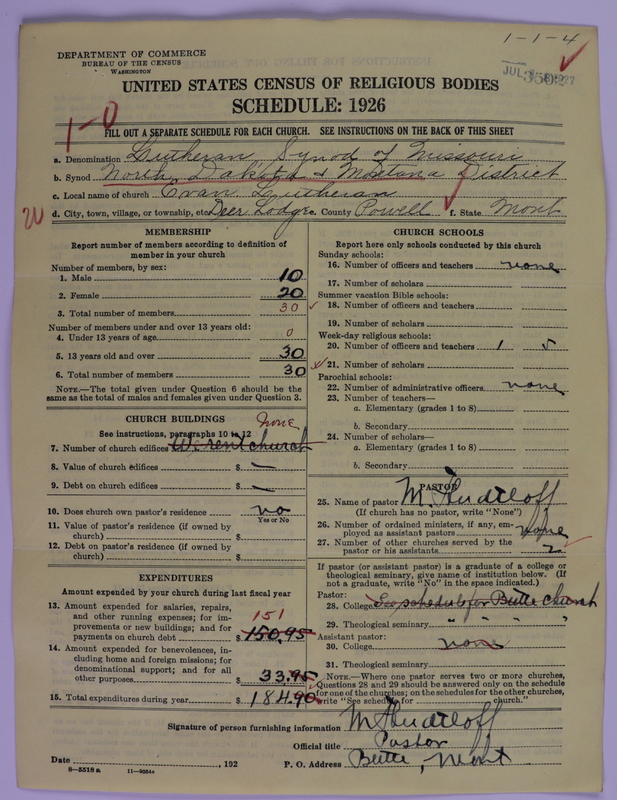 1-1-4
DEPARTMENT OF COMMERCE
BUREAU OF THE CENSUS
WASHINGTON
UNITED STATES CENSUS OF RELIGIOUS BODIES
SCHEDULE: 1926
1-0
FILL OUT A SEPARATE SCHEDULE FOR EACH CHURCH. SEE INSTRUCTIONS ON THE BACK OF THIS SHEET
a. Denomination Lutheran, Synod of Missouri
b. Synod North Dakota & Montana District
c. Local name of church Evan. Lutheran
d. City, town, village, or township, etc. Deer Lodge e. County Powell f. State Mont
MEMBERSHIP
Report number of members according to definition of
member in your church
Number of members, by sex:
1. Male 10
2. Female 20
3. Total number of members 30
Number of members under and over 13 years old:
4. Under 13 years of age 0
5. 13 years old and over 30
6. Total number of members 30
NOTE.—The total given under Question 6 should be the
same as the total of males and females given under Question 3.
CHURCH BUILDINGS
none
See instructions, paragraphs 10 to 12
7. Number of church edifices We rent church
8. Value of church edifices $ —
9. Debt on church edifices $ —
10. Does church own pastor's residence no
Yes or No
11. Value of pastor's residence (if owned by
church) $
12. Debt on pastor's residence (if owned by
church) $
EXPENDITURES
Amount expended by your church during last fiscal year
13. Amount expended for salaries, repairs,
and other running expenses; for im-
provements or new buildings; and for
payments on church debt $ 150.95
151
14. Amount expended for benevolences, in-
cluding home and foreign missions; for
denominational support; and for all
other purposes $ 33.95
15. Total expenditures during year $ 184.90
CHURCH SCHOOLS
Report here only schools conducted by this church
Sunday schools:
16. Number of officers and teachers none
17. Number of scholars
Summer vacation Bible schools:
18. Number of officers and teachers
19. Number of scholars
Week-day religious schools:
20. Number of officers and teachers 1 5
21. Number of scholars
Parochial schools:
22. Number of administrative officers none
23. Number of teachers—
a. Elementary (grades 1 to 8)
b. Secondary
24. Number of scholars—
a. Elementary (grades 1 to 8)
b. Secondary
PASTOR
25. Name of pastor M.
(If church has no pastor, write "None")
26. Number of ordained ministers, if any, em-
ployed as assistant pastors none
27. Number of other churches served by the
pastor or his assistants 2
If pastor (or assistant pastor) is a graduate of a college or
theological seminary, give name of institution below. (If
not a graduate, write "No" in the space indicated.)
Pastor:
28. College See schedule for Butte church
29. Theological seminary " " " "
Assistant pastor:
30. College none
31. Theological seminary
NOTE.—Where one pastor serves two or more churches,
Questions 28 and 29 should be answered only on the schedule
for one of the churches; on the schedules for the other churches,
write "See schedule for church."
Signature of person furnishing information M.
Official title Pastor
Date , 192 P. O. Address Butte, Mont
8-5518 a 11-9354a